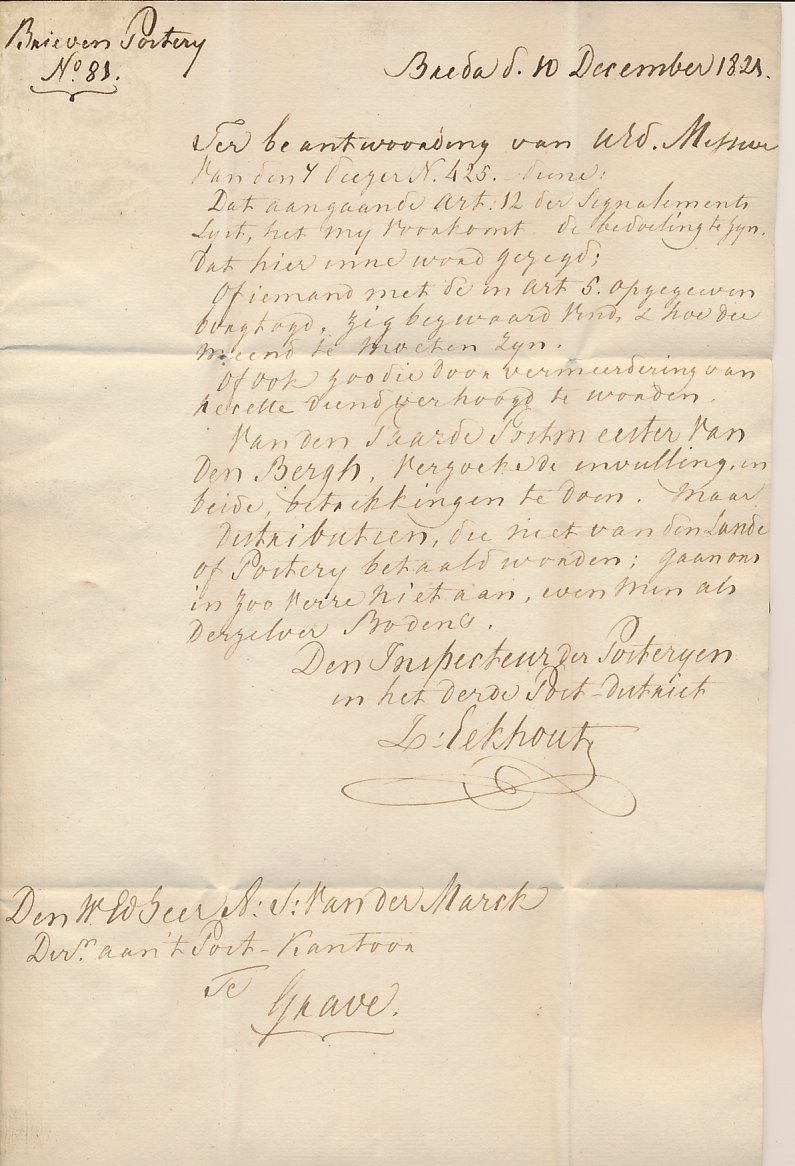 Brieven Postery
No 81.
Breda d. 10 December 1821.
Ter beantwoording van UEd. Missive
Van den 7 deezer N. 425. diene;
Dat aangaande Art: 12 der Signalements
Lyst, het my voorkomt de bedoeling te zyn.
Dat hier inne word gezegd;
Of iemand met de in Art 5. opgegeven
borgtogd, zig bezwaard vind, & hoe die
meend te moeten zyn.
Of ook zoo die door vermeerdering van
recette diend verhoogd te worden.
Van den Paarde Postmeester Van
Den Bergh, verzoeke de invulling, in
beide, betrekkingen te doen. Maar
Distributien, die niet van den Lande
of Postery betaald worden; gaan ons
in zoo verre niet aan, even min als
Derzelver Bodens.
Den Inspecteur der Posteryen
in het derde Post-district
L: Eekhout
Den W. Ed Heer A: J: Van der Marck
Dirr. aan't Post-Kantoor
Te
Grave.